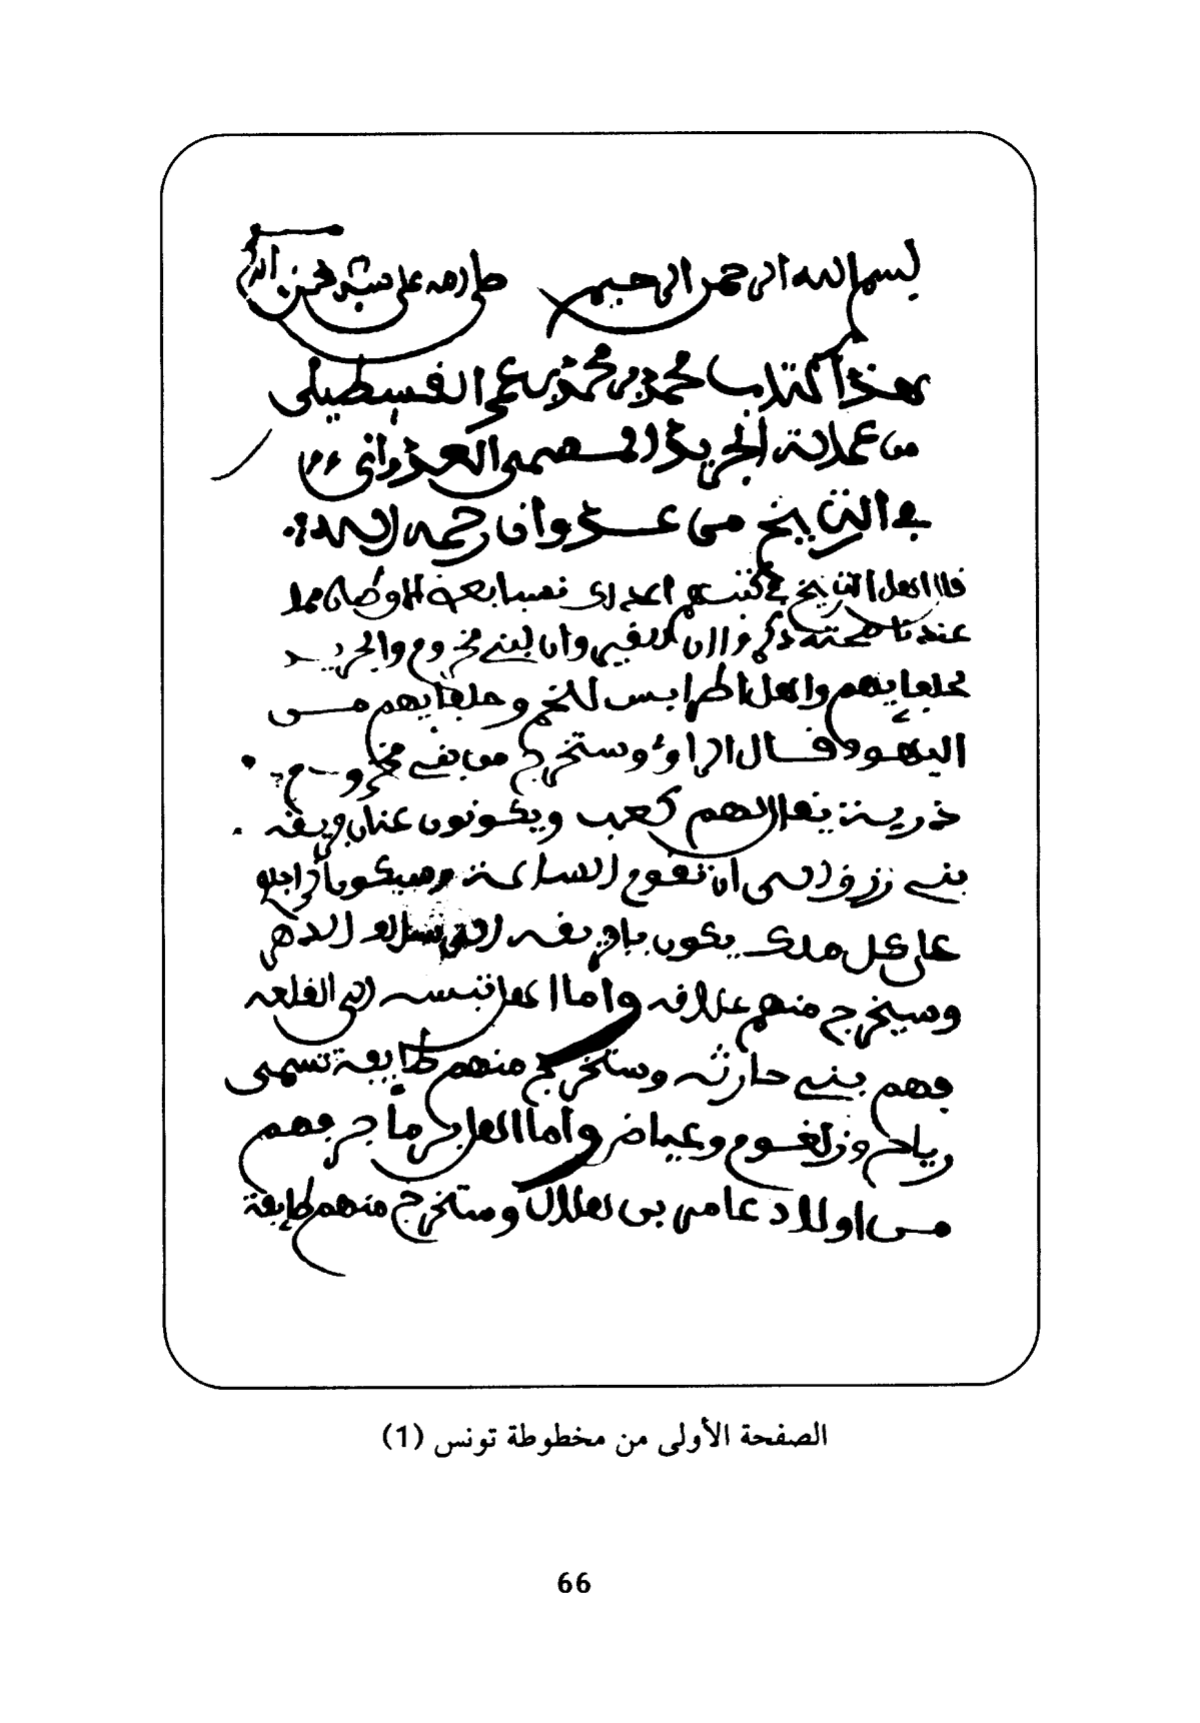 بسم الله الرحمن الرحيم صلى الله على سيدنا محمد
هذا كتاب محمد بن محمد بن عمر القسطيلي
من عمالة الجريد المسمى العدواني
في التاريخ من عدوان رحمه الله
قال اهل التاريخ في كتبهم
عندنا صحته وان بني مخزوم والجريد
لحلفايهم واهل اطرابلس للخم وحلفايهم مـن
اليهود قـال الراوي وستخرج من بني مخزوم
ذرية يقال لهم كعب ويكونون عنان افريقه
بني الى ان تقوم الساعة وسيكون
على كل ملك يكون بافريقه الدهر
وسيخرج منهم علاقه واما اهل تبسه الى القلعه
فهم بني حارثه وستخرج منهم طايفة تسمى
رياح وزلغوم وعياض واما اهل فهم
مـن اولاد عامر بن هلال وستخرج منهم طايفة
الصفحة الأولى من مخطوطة تونس (1)
66